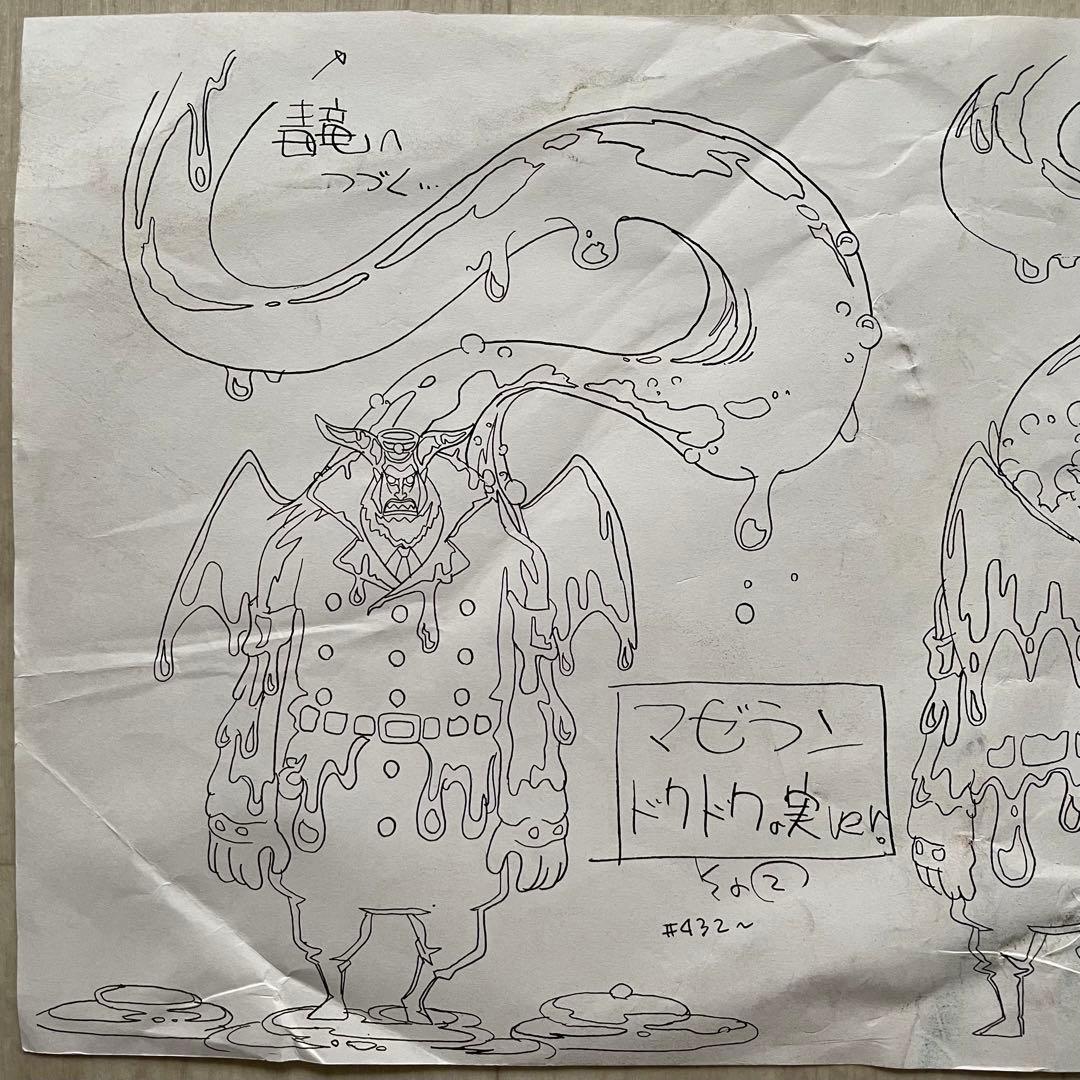 毒竜へ
つづく…
マゼラン
ドクドクの実ver.
その②
#432~